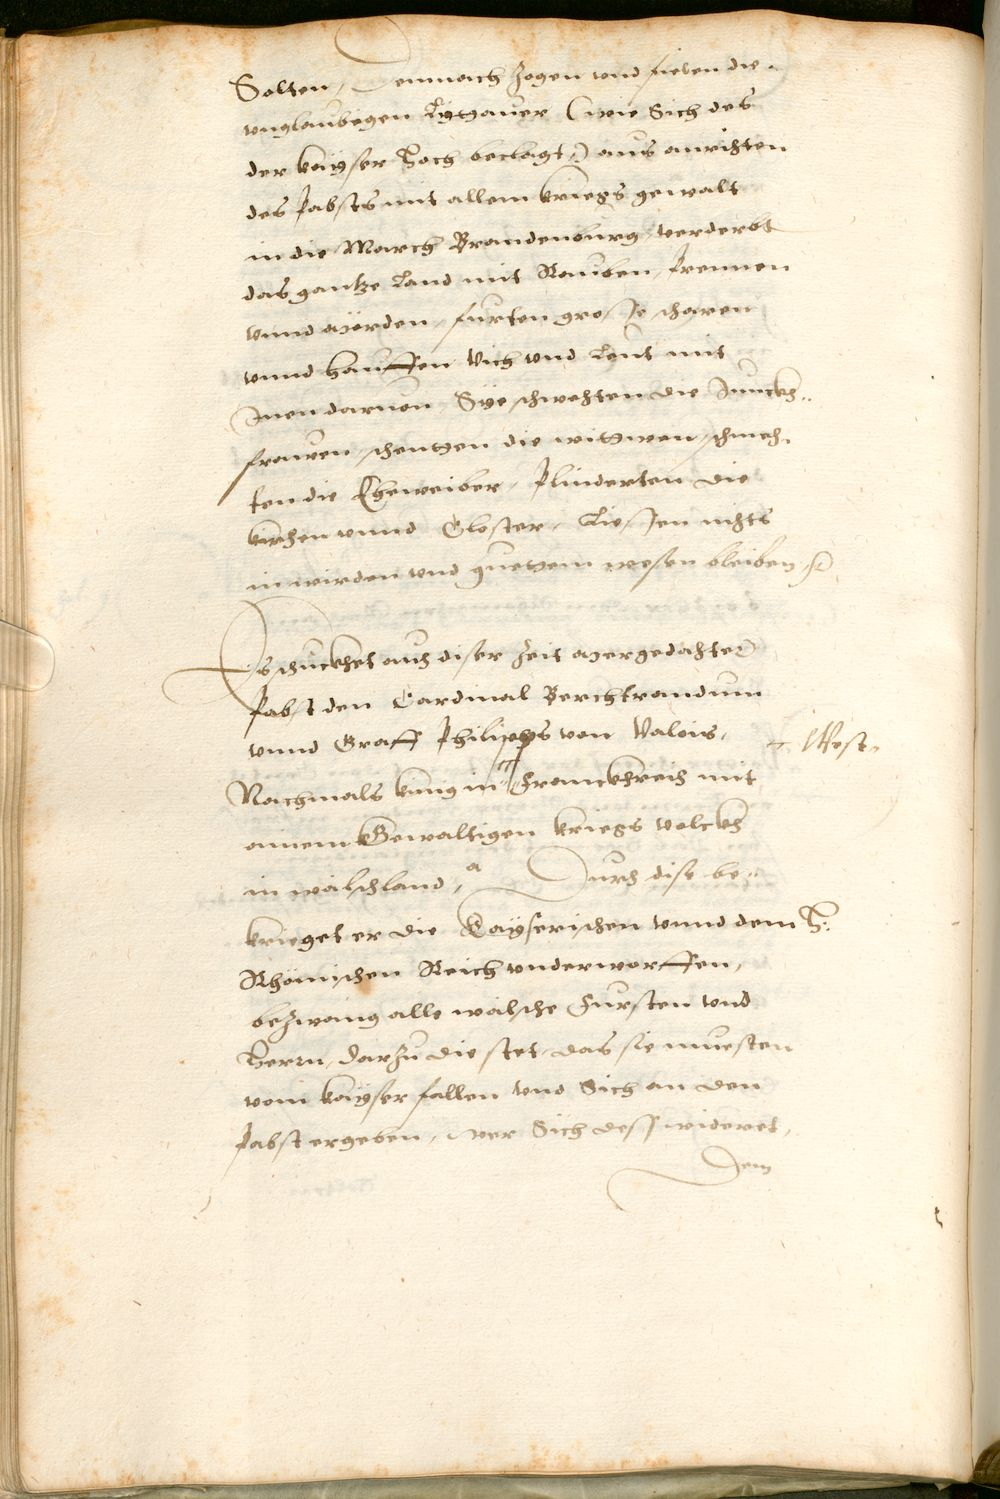 Solten, Demnach zogen vnd fielen die
vnglaubigen Lyttauer (wie Sich des
der kayser Hoch beclagt,) aus anrichten
des Pabsts mit allem kriegs gewalt
in die March Brandenburg, verderbt
das gantze Land mit Rauben, Prennen
vnnd mörden, furten grosse scharen
vnnd hauffen Vich vnd Leut mit
Inen daruon, Sye schwechten die Junckh-
frauen, schentgen die witwen, schmech-
ten die Eheweiber, Plinderten die
kirchen vnnd Closter, Liessen nichts
in wirden vnd guettem wesen bleiben
Es schickhet auch diser Zeit mergedachter
Pabst den Cardinal Berchtrandum
vnnd Graff Philipps von Valois,
Nachmals künig in Franckhreich mit
West-
ainem Gewaltigen kriegs volckh
in wälschland, Durch dise be-
krieget er die Cayserischen vnnd dem H:
Rhömischen Reich vnderworffen,
bezwang alle wälsche Fursten vnd
Herrn, darzu die stet, das sie muesten
vom kayser fallen vnd Sich an den
Pabst ergeben, wer Sich dess wideret,
Dem